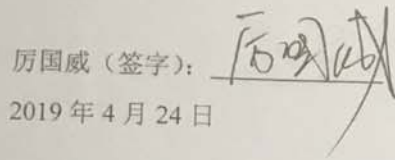 厉国威（签字）：厉国威
2019 年 4 月 24 日